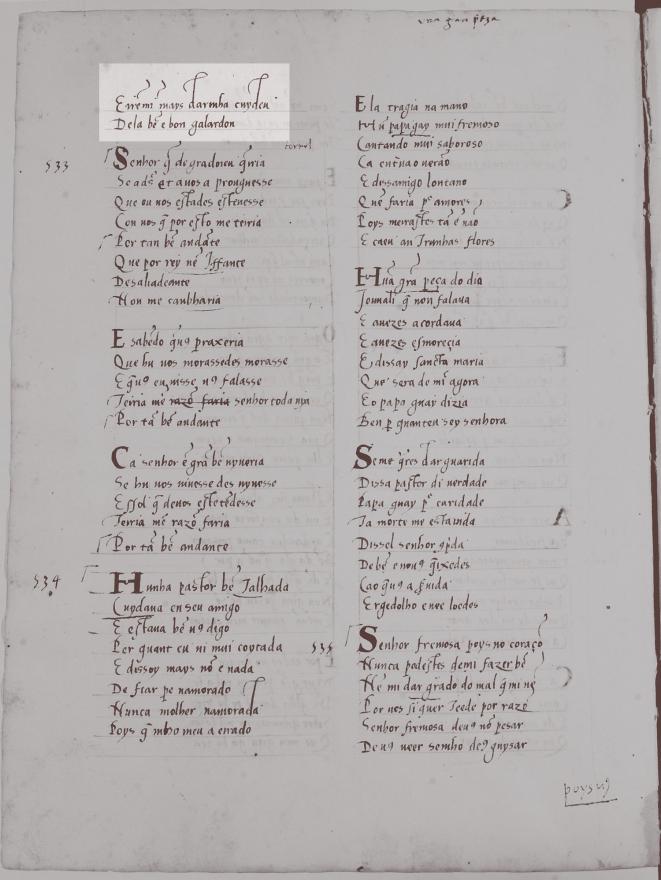 una gran peça
E irem̃ mays darmha cuydeu
Dela bẽ e bon galardon
tornel
533
Senhor q̃ de gradoieu q̃ria
Se ads̃ et auos a prouguesse
Que ou uos estades esteuesse
Con uos q̃ por esto me teiria
Por tan bẽ andãte
Que por rey nẽ Iffante
Desaliadeante
Non me canbharia
E sabẽdo q̃u9 praxeria
Que hu uos morassedes morasse
E q̃u9 euuisse, u9 falasse
Teiria me razõ faria senhor toda uya
Por tã bẽ andante
Ca senhor ẽ grã bẽ uyueria
Se hu uos uiuesse des uyuesse
E ssol q̃ deuos estẽdesse
Terria me razõ faria
Por tã bẽ andante
534
Hunha pastor bẽ Talhada
Cuydaua en seu amigo
E estaua bẽ u9 digo
Per quant eu ui mui coytada
E dissoy mays nõ e nada
De fiar pe namorado
Nunca molher namorada
Poys q̃ mho meu a errado
Ela tragia na mano
Hũ papagay mui fremoso
Cantando mui saboroso
Ca entraua o uerão
E dessamigo loucano
Que faria p̃ amores
Poys meirastes tã e uão
E caeu an Trunhas flores
Hũa grã peça do dia
Jouuali q̃ non falaua
E auezes acordaua
E auezes esmorecia
E dissay sancta maria
Que sera de mi agora
E o papa guay dizia
Ben p quanteu sey senhora
Seme q̃res dar guarida
Dissa pastor di uerdade
Papa guay p̃ caridade
Ta morte me esta uida
Dissel senhor 9p̃da
De bẽ e nou9 q̃ixedes
Ca o q̃u9 a s̃uida
Ergedolho e uee loedes
535
Senhor fremosa poys no coraçõ
Nunca posestes demi fazer bẽ
Nẽ mi dar grado do mal q̃ mi uẽ
Por uos si quer Teede por razõ
Senhor fremosa deu9 nõ pesar
De u9 ueer semho de9 guysar
poys u9